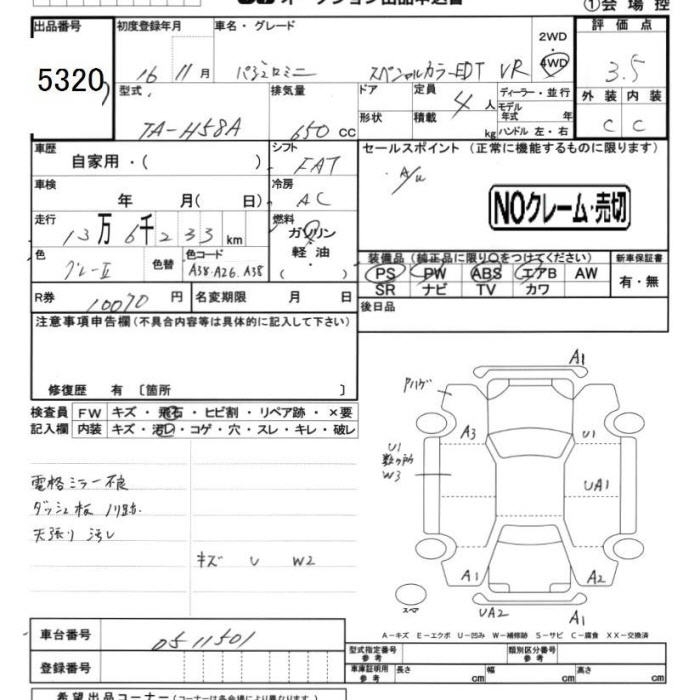 オークション出品申込書
①会場控
出品番号 5320
初度登録年月 16 11月
車名・グレード パジェロミニ スペシャルカラーEDT VR
2WD 4WD
評価点 3.5
型式 TA-H58A
排気量 650 cc
ドア 形状
定員 4人
積載 kg
ディーラー・並行
モデル年式 年
ハンドル 左・右
外装 内装
C C
車歴 自家用・( )
シフト FAT
セールスポイント (正常に機能するものに限ります)
A/W
NOクレーム・売切
車検 年 月( 日)
冷房 AC
走行 13万6千233km
燃料 ガソリン 軽油 ( )
色 グレーII
色替
色コード A38.A26.A38
装備品 (純正品に限り○をつけてください)
PS PW ABS エアB AW
SR ナビ TV カワ
新車保証書 有・無
R券 10070円
名変期限 月 日
後日品
注意事項申告欄 (不具合内容等は具体的に記入して下さい)
修復歴 有 〔箇所 〕
検査員記入欄
FW キズ・飛石・ヒビ割・リペア跡・×要
内装 キズ・汚レ・コゲ・穴・スレ・キレ・破レ
電格ミラー不良
ダッシュ板 ノリ跡
天張り 汚し
キズ U W2
A1
アハゲ
A3 U1
U1 数ヶ所 W3
UA1
A1 A2
スペア
UA2 A1
A-キズ E-エクボ U-凹み W-補修跡 S-サビ C-腐食 XX-交換済
車台番号 0511501
登録番号
型式指定番号 参考
類別区分番号 参考
車庫証明用 参考 長さ cm 幅 cm 高さ cm
希望出品コーナー (コーナーは各会場により異なります)